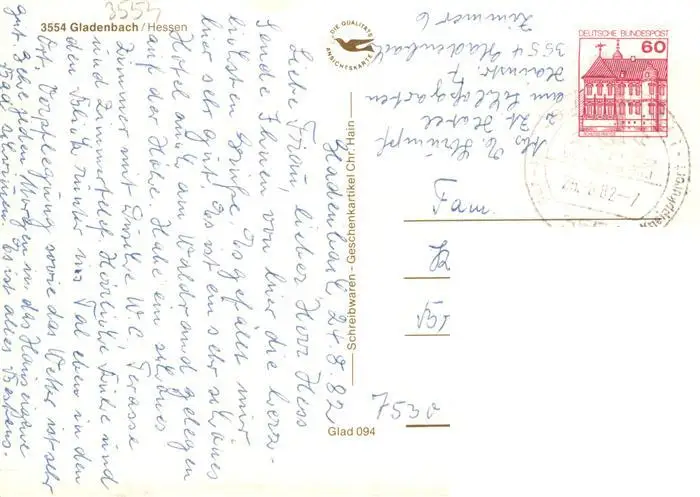 3554
3554 Gladenbach / Hessen
DIE QUALITÄTS
ANSICHTSKARTE
Schreibwaren - Geschenkartikel Chr. Hain
Glad 094
DEUTSCHE BUNDESPOST
60
Gladenbach 24.8.82
Liebe Frau, lieber Herr Hess
Sende Ihnen von hier die herz-
lichsten Grüße. Es gefällt mir
hier sehr gut. Das ist ein sehr schönes
Hotel am Waldrand gelegen
auf der Höhe. Habe ein schönes
Zimmer mit Dusche W.C. Terasse
und Zimmertelef. Herrliche Ruhe und
den Blick runter ins Tal eben in den
Ort. Verpflegung sowie das Wetter ist sehr
gut. Gehe jeden Morgen in das Hauseigene
schwimmen. Es ist alles Bestens.
Abs. Strumpf
z. Zt. Hotel
am Schloßgarten
Hainstr. 7
3554 Gladenbach
Zimmer 6
Fam.
7530